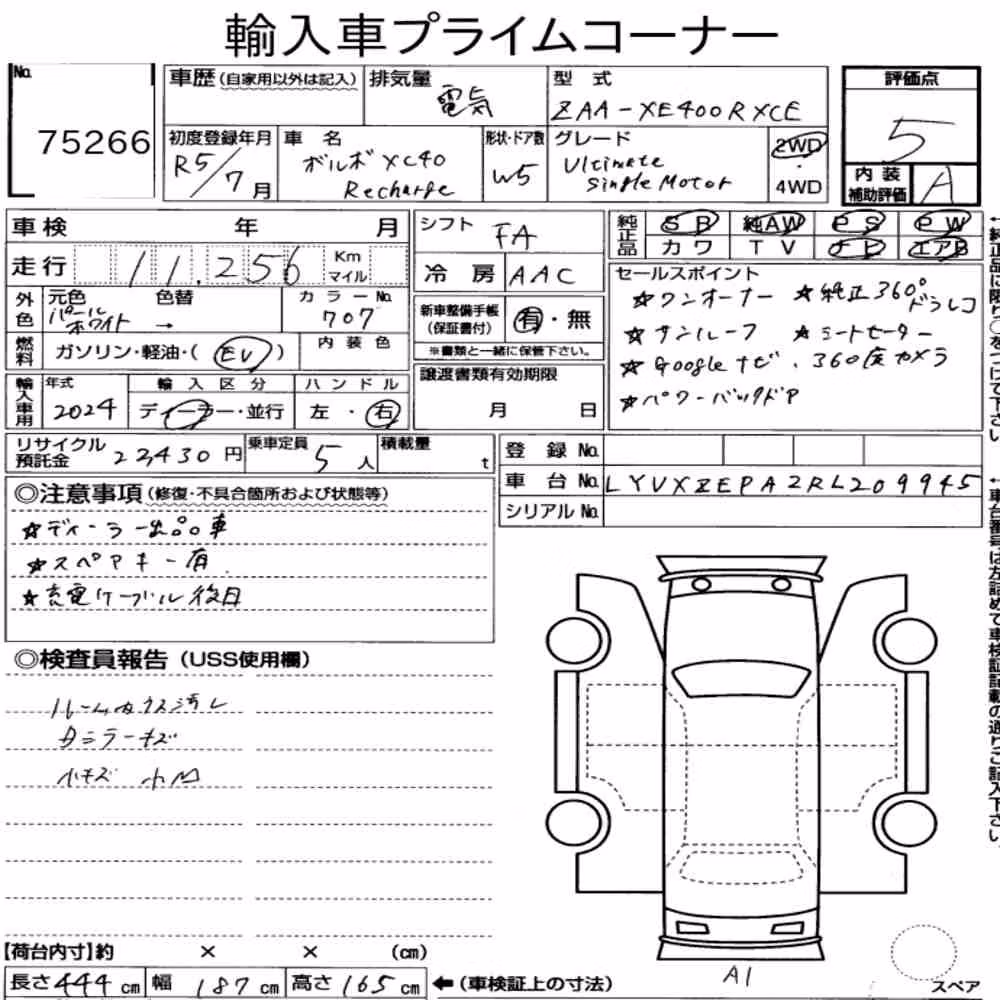 輸入車プライムコーナー
No. 75266
車歴(自家用以外は記入)
排気量 電気
型式 ZAA-XE400RXCE
初度登録年月 R5/7月
車名 ボルボ XC40 Recharge
形状・ドア数 W5
グレード Ultimate Single Motor
2WD・4WD
評価点 5
内装補助評価 A
車検 年 月
走行 11,256 Km マイル
外色 元色 パールホワイト 色替 → カラーNo. 707
燃料 ガソリン・軽油・(EV) 内装色
輸入車用 年式 2024 輸入区分 ディーラー・並行 ハンドル 左・右
シフト FA
冷房 AAC
新車整備手帳(保証書付) 有・無
※書類と一緒に保管下さい。
譲渡書類有効期限
月 日
純正品 SR 純AW PS PW
カワ TV ナビ エアB
セールスポイント
☆ワンオーナー ☆純正360°ドラレコ
☆サンルーフ ☆シートヒーター
☆Googleナビ、360度カメラ
☆パワーバックドア
リサイクル預託金 22,430円 乗車定員 5人 積載量 t
登録No.
車台No. LYVXZEPA2RL209945
シリアルNo.
◎注意事項(修復・不具合箇所および状態等)
☆ディーラー出品車
☆スペアキー有
☆充電ケーブル後日
◎検査員報告(USS使用欄)
ルーム内ウス汚レ
Dミラーキズ
小キズ 小凹
【荷台内寸】約 × × (cm)
長さ444cm 幅187cm 高さ165cm ←(車検証上の寸法)
A1
スペア
←純正品に限り○をつけて下さい。
←車台番号は左詰めで車検証記載の通りご記入下さい。